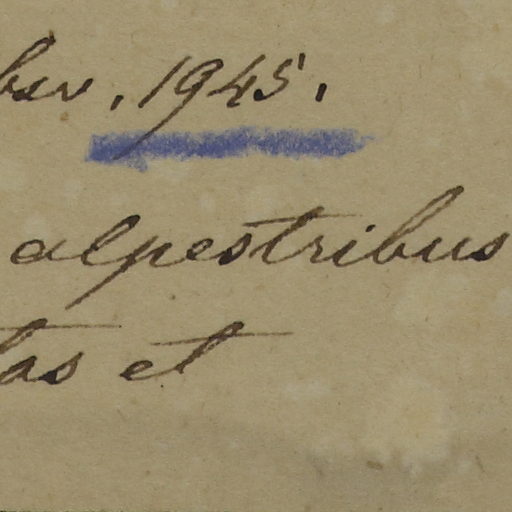 bsv. 1945.
alpestribus
tas et